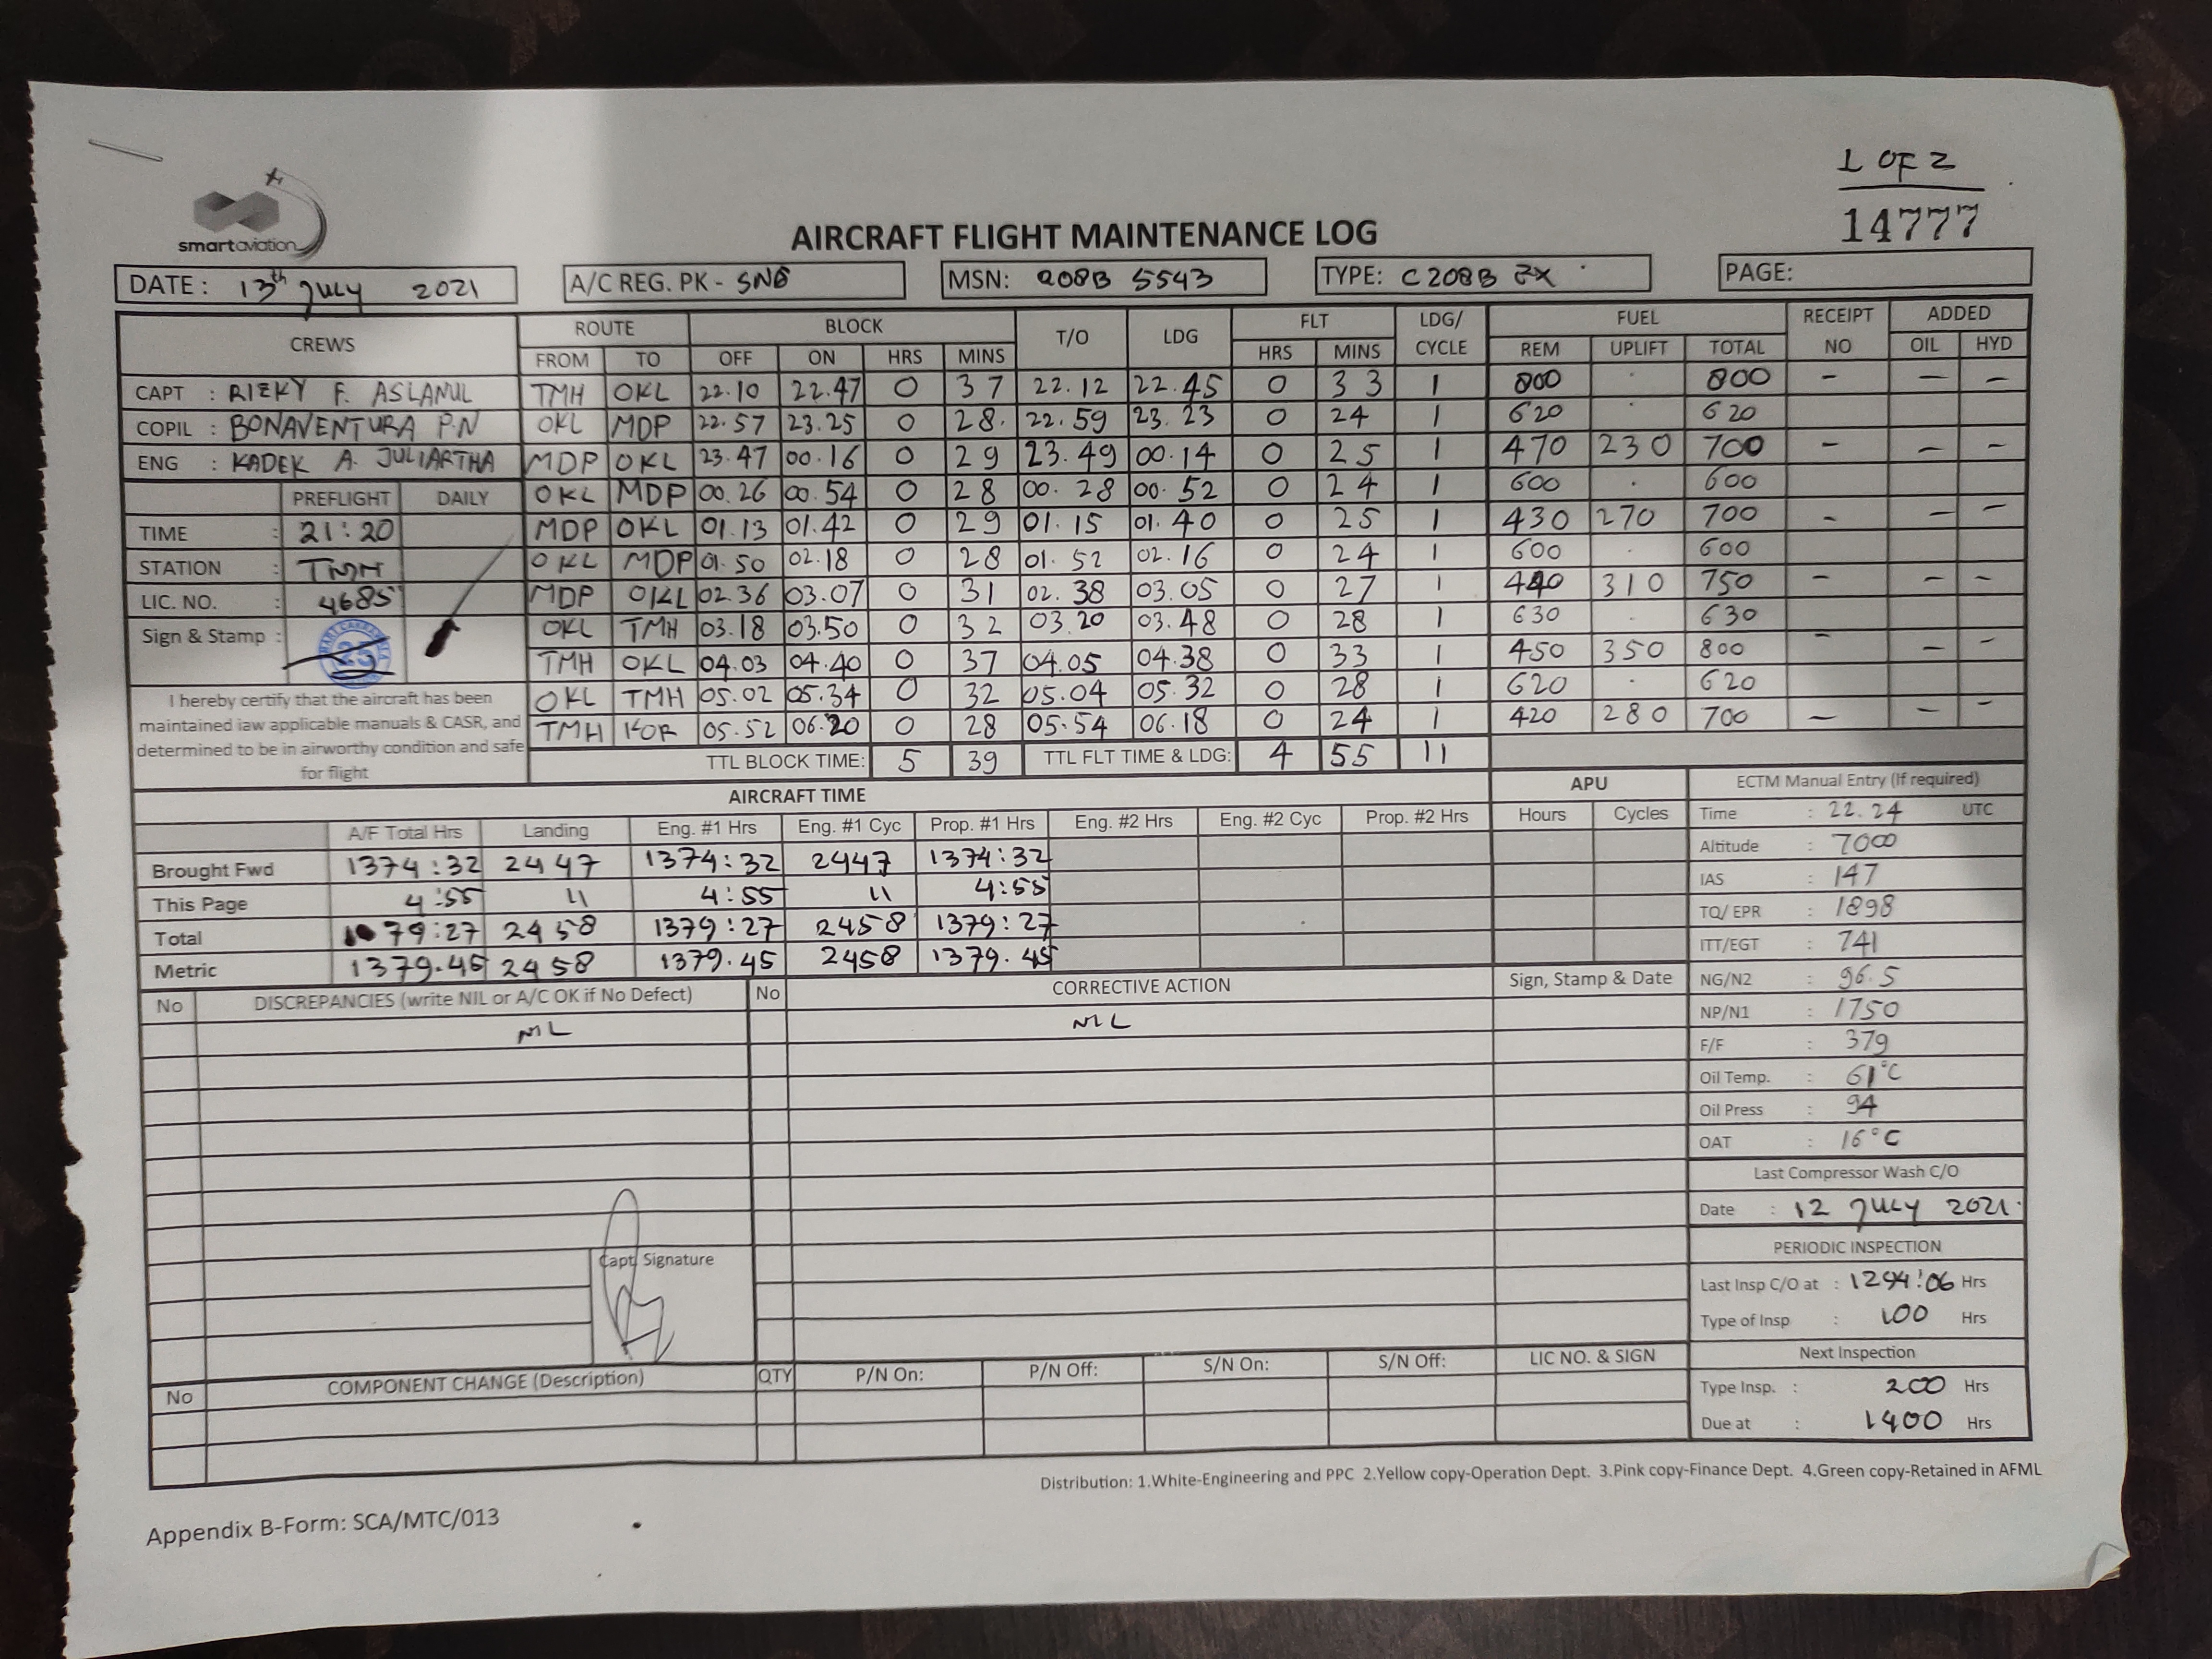 1 OF 2
14777
smartaviation
AIRCRAFT FLIGHT MAINTENANCE LOG
DATE : 13th July 2021 A/C REG. PK - SNG MSN: 208B 5543 TYPE: C208B EX PAGE:
CREWS ROUTE BLOCK T/O LDG FLT LDG/CYCLE FUEL RECEIPT NO ADDED
FROM TO OFF ON HRS MINS HRS MINS REM UPLIFT TOTAL OIL HYD
CAPT : RIZKY F. ASLANUL TMH OKL 22.10 22.47 0 37 22.12 22.45 0 33 1 800 . 800 - - -
COPIL : BONAVENTURA P.N OKL MDP 22.57 23.25 0 28. 22.59 23.23 0 24 1 620 . 620
ENG : KADEK A. JULIARTHA MDP OKL 23.47 00.16 0 29 23.49 00.14 0 25 1 470 230 700 - - -
PREFLIGHT DAILY OKL MDP 00.26 00.54 0 28 00.28 00.52 0 24 1 600 . 600
TIME : 21:20 MDP OKL 01.13 01.42 0 29 01.15 01.40 0 25 1 430 270 700 - - -
STATION : TMH OKL MDP 01.50 02.18 0 28 01.52 02.16 0 24 1 600 . 600
LIC. NO. : 4685 MDP OKL 02.36 03.07 0 31 02.38 03.05 0 27 1 440 310 750 - - -
Sign & Stamp : 25 OKL TMH 03.18 03.50 0 32 03.20 03.48 0 28 1 630 . 630
TMH OKL 04.03 04.40 0 37 04.05 04.38 0 33 1 450 350 800 - - -
I hereby certify that the aircraft has been OKL TMH 05.02 05.34 0 32 05.04 05.32 0 28 1 620 . 620
maintained iaw applicable manuals & CASR, and TMH KOR 05.52 06.20 0 28 05.54 06.18 0 24 1 420 280 700 - - -
determined to be in airworthy condition and safe
for flight
TTL BLOCK TIME: 5 39 TTL FLT TIME & LDG: 4 55 11
AIRCRAFT TIME APU ECTM Manual Entry (If required)
A/F Total Hrs Landing Eng. #1 Hrs Eng. #1 Cyc Prop. #1 Hrs Eng. #2 Hrs Eng. #2 Cyc Prop. #2 Hrs Hours Cycles Time : 22.24 UTC
Brought Fwd 1374:32 2447 1374:32 2447 1374:32 Altitude : 7000
This Page 4:55 11 4:55 11 4:55 IAS : 147
Total 79:27 2458 1379:27 2458 1379:27 TQ/ EPR : 1898
Metric 1379.45 2458 1379.45 2458 1379.45 ITT/EGT : 741
No DISCREPANCIES (write NIL or A/C OK if No Defect) No CORRECTIVE ACTION Sign, Stamp & Date NG/N2 : 96.5
NIL NIL NP/N1 : 1750
F/F : 379
Oil Temp. : 61°C
Oil Press : 94
OAT : 16°C
Last Compressor Wash C/O
Date : 12 July 2021.
Capt. Signature PERIODIC INSPECTION
Last Insp C/O at : 1294:06 Hrs
Type of Insp : 100 Hrs
Next Inspection
No COMPONENT CHANGE (Description) QTY P/N On: P/N Off: S/N On: S/N Off: LIC NO. & SIGN
Type Insp. : 200 Hrs
Due at : 1400 Hrs
Distribution: 1.White-Engineering and PPC 2.Yellow copy-Operation Dept. 3.Pink copy-Finance Dept. 4.Green copy-Retained in AFML
Appendix B-Form: SCA/MTC/013